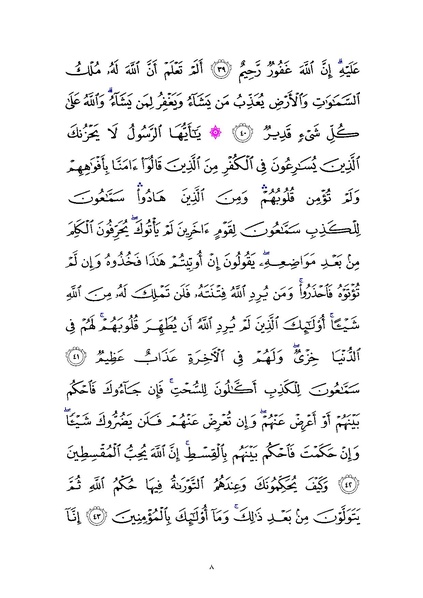 عَلَيْهِۗ إِنَّ ٱللَّهَ غَفُورٌ رَّحِيمٌ ٣٩ أَلَمْ تَعْلَمْ أَنَّ ٱللَّهَ لَهُۥ مُلْكُ
ٱلسَّمَٰوَٰتِ وَٱلْأَرْضِ يُعَذِّبُ مَن يَشَآءُ وَيَغْفِرُ لِمَن يَشَآءُۗ وَٱللَّهُ عَلَىٰ
كُلِّ شَىْءٍ قَدِيرٌ ٤٠ ۞ يَٰٓأَيُّهَا ٱلرَّسُولُ لَا يَحْزُنكَ
ٱلَّذِينَ يُسَٰرِعُونَ فِى ٱلْكُفْرِ مِنَ ٱلَّذِينَ قَالُوٓا۟ ءَامَنَّا بِأَفْوَٰهِهِمْ
وَلَمْ تُؤْمِن قُلُوبُهُمْۛ وَمِنَ ٱلَّذِينَ هَادُوا۟ۛ سَمَّٰعُونَ
لِلْكَذِبِ سَمَّٰعُونَ لِقَوْمٍ ءَاخَرِينَ لَمْ يَأْتُوكَۖ يُحَرِّفُونَ ٱلْكَلِمَ
مِنۢ بَعْدِ مَوَاضِعِهِۦۖ يَقُولُونَ إِنْ أُوتِيتُمْ هَٰذَا فَخُذُوهُ وَإِن لَّمْ
تُؤْتَوْهُ فَٱحْذَرُوا۟ۚ وَمَن يُرِدِ ٱللَّهُ فِتْنَتَهُۥ فَلَن تَمْلِكَ لَهُۥ مِنَ ٱللَّهِ
شَيْـًٔاۚ أُو۟لَٰٓئِكَ ٱلَّذِينَ لَمْ يُرِدِ ٱللَّهُ أَن يُطَهِّرَ قُلُوبَهُمْۚ لَهُمْ فِى
ٱلدُّنْيَا خِزْىٌۖ وَلَهُمْ فِى ٱلْءَاخِرَةِ عَذَابٌ عَظِيمٌ ٤١
سَمَّٰعُونَ لِلْكَذِبِ أَكَّٰلُونَ لِلسُّحْتِۚ فَإِن جَآءُوكَ فَٱحْكُم
بَيْنَهُمْ أَوْ أَعْرِضْ عَنْهُمْۖ وَإِن تُعْرِضْ عَنْهُمْ فَلَن يَضُرُّوكَ شَيْـًٔاۖ
وَإِنْ حَكَمْتَ فَٱحْكُم بَيْنَهُم بِٱلْقِسْطِۚ إِنَّ ٱللَّهَ يُحِبُّ ٱلْمُقْسِطِينَ
٤٢ وَكَيْفَ يُحَكِّمُونَكَ وَعِندَهُمُ ٱلتَّوْرَىٰةُ فِيهَا حُكْمُ ٱللَّهِ ثُمَّ
يَتَوَلَّوْنَ مِنۢ بَعْدِ ذَٰلِكَۚ وَمَآ أُو۟لَٰٓئِكَ بِٱلْمُؤْمِنِينَ ٤٣ إِنَّآ
٨